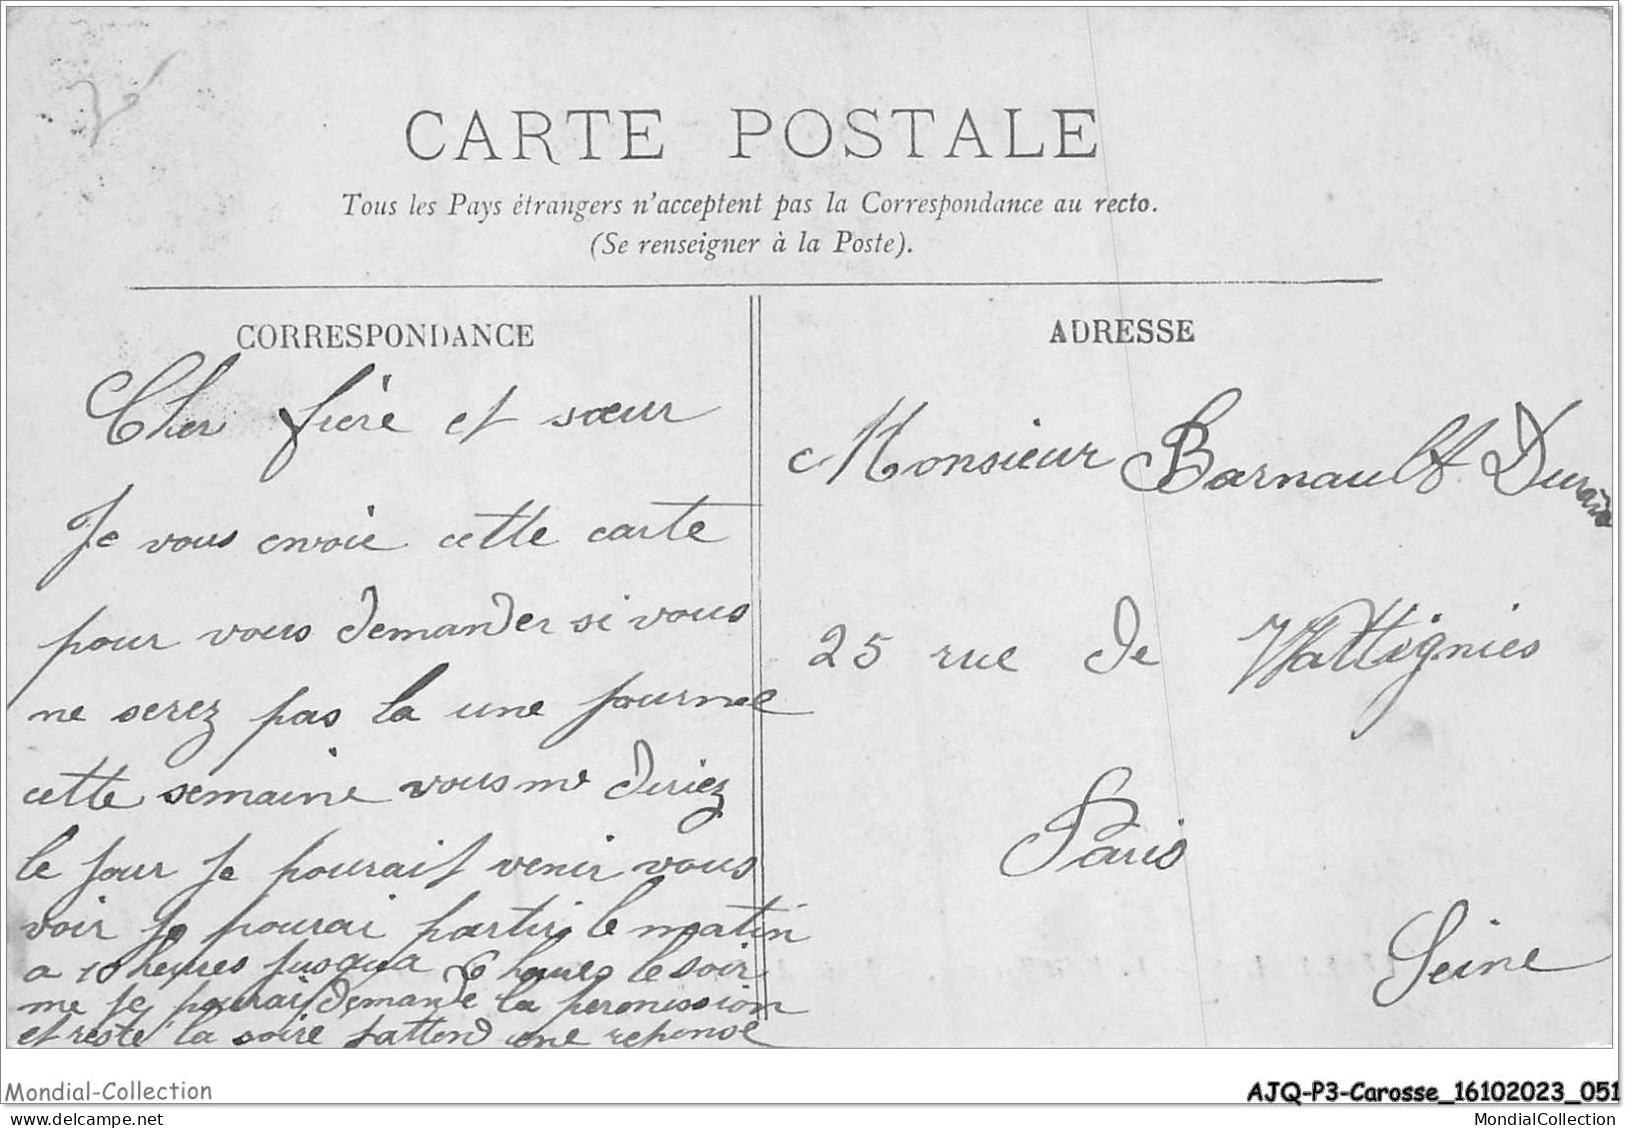 CARTE POSTALE
Tous les Pays étrangers n'acceptent pas la Correspondance au recto.
(Se renseigner à la Poste).
CORRESPONDANCE
Cher frère et sœur
Je vous envoie cette carte
pour vous demander si vous
ne serez pas la une journee
cette semaine vous me diriez
le jour Je pourait venir vous
voir Je pourai partir le matin
a 10 heures jusqua 6 heures le soir
me Je pourai demande la permission
et reste la soire Jattend une reponse
ADRESSE
Monsieur Barnault
25 rue de Wattignies
Paris
Seine
Mondial-Collection
AJQ-P3-Carosse_16102023_051
www.delcampe.net
MondialCollection